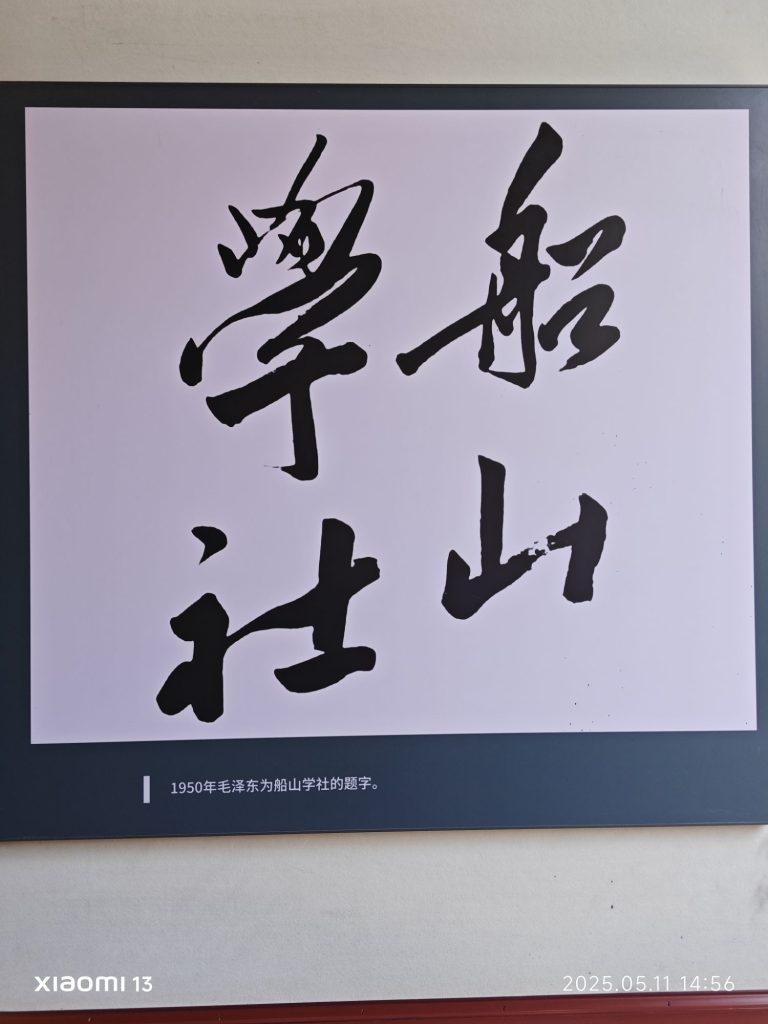 船山
學社
1950年毛泽东为船山学社的题字。
xiaomi 13
2025.05.11 14:56